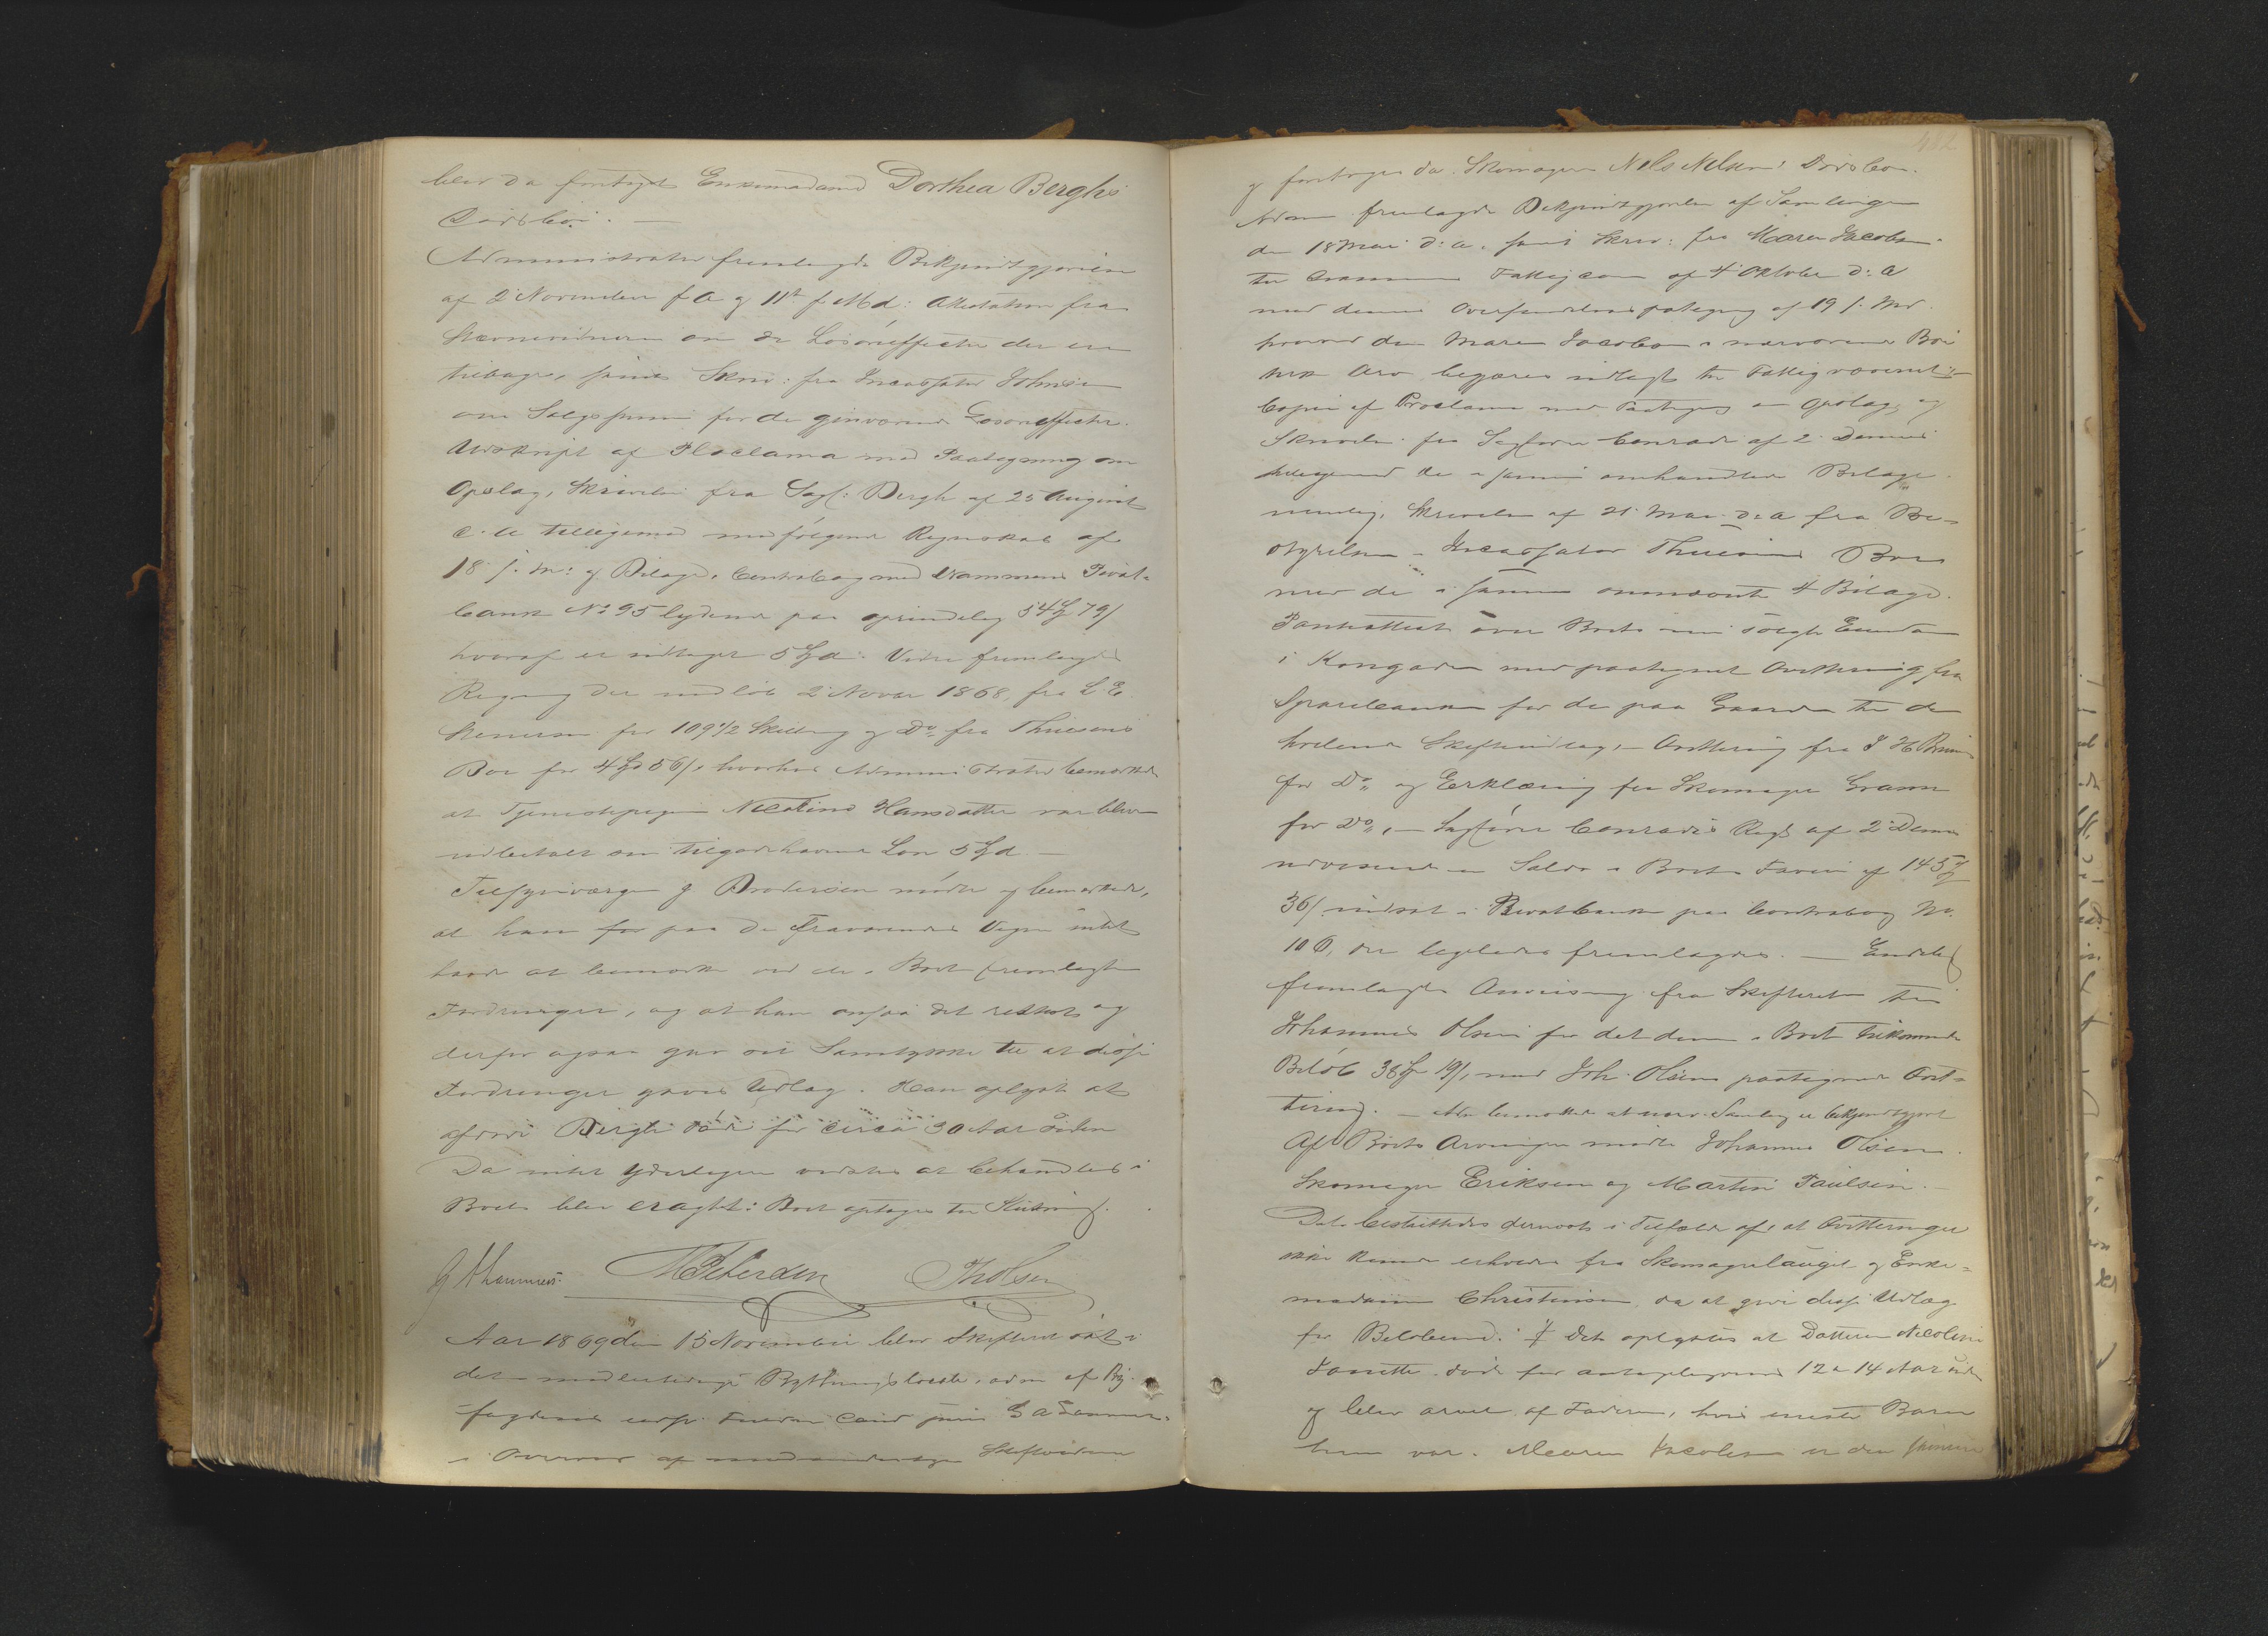 blev da foretaget Enkemadame Dorthea Berghs
Dødsbo. —
Administrator fremlagde Bekjendtgjørelse
af 2 November f A og 11te f. Md: Attestation fra
om de Løsøreffecter der er
tilbage, samt Skriv: fra Incassator Johnsen
om Salgssum for de gjenværende Løsøreffecter.
Udskrift af Proclama med Paategning om
Opslag, Skrivelse fra Sagf: Bergh af 25 August
d. A. tilligemed medfølgende Regnskab af
18 f. M: og Bilage, Contrabog med Drammens Privat-
bank No 95 lydende paa oprindelig 54 79/
hvoraf er udtaget 5 Spd. Videre fremlagdes
Regning der indløb 2 Novbr 1868, fra L E
Stenersen for 109 1/2 Skilling og Do fra Thuesens
Boe for 4 56/, hvorhos Administrator bemærkede
at Tjenestepigen Nicoline Hansdatter var bleven
udbetalt sin tilgodehavende Løn 5 Spd —
Tilsynsværge J Brodersen mødte og bemærkede,
at han for paa de Fraværendes Vegne intet
havde at bemærke ved de i Boet fremlagte
Fordringer, og at han ansaa det rettest og
derfor ogsaa gav sit Samtykke til at disse
Fordringer gaves Udlæg. Han oplyste at
afdøde Bergh døde for circa 30 Aar siden
Da intet Yderligere vidstes at behandles i
Boet blev eragtet: Boet optages til Slutning.
M Petersen Th Olsen
Aar 1869 den 15 November blev Skifteret sat i
det midlertidige Bythingslocale, adm af By-
fogdens
i Overvær af medundertegn Skiftevidner
og foretoges da Skomager Nils Nilsens Dødsbo.
Adm fremlagde Bekjendtgjørelse af Samlingen
den 18 Mai d: a. samt Skriv: fra Maren Jacobsen
til Drammens Fattigcom af 4 Oktober d: A
med dennes Oversendelsespategning af 19 f. Md.
hvorved den Maren Jacobsen i nærværende Boe
Arv begjæres udlagt til Fattigvæsenet —
Copie af Proclama med Paategning om Opslag, og
Skrivelse fra Sagfører Conradi af 2 Dennes
tilligemed de i samme omhandlede Bilage
nemlig, Skrivelse af 21 Mai d: a fra Be-
styrelsen i Incassator Thuesens Boe
med de i samme omnævnte 4 Bilage.
Panteattest over Boets nu solgte Eiendom
i Kongaden med paategnet Qvittering fra
Sparebanken for de paa Gaarden til de
Skifteudlæg, — Qvittering fra
for Do og Erklæring fra Skomager Gram
for Do, — Sagfører Conradis Regn af 2 Dennes
udvisende en Saldo i Boets Favør af 145
36/ indsat i Privatbanken paa Contrabog No.
106, der ligeledes fremlagdes. — Endelig
fremlagdes Anvisning fra Skifteretten til
Johannes Olsen for det dem i Boet tilkommende
Beløb 38 19/, med Joh. Olsens paategnede Qvit-
tering. — Adm bemærkede at nærv. Samling er bekjendtgjort
Af Boets Arvinger mødte Johannes Olsen.
Skomager Eriksen og Martin Paulsen. —
Det besluttedes dernæst i Tilfælde af, at Qvitteringer
ikke kunde erhverves fra Skomagerlauget og Enke-
madam Christensen, da at give disse Udlæg
for Beløbene. Det oplystes at Datteren Nicoline
døde for antagelig 12 a 14 Aar siden
og blev arvet af Faderen, hvis eneste Barn
hun var. Maren Jacobsen er den samme